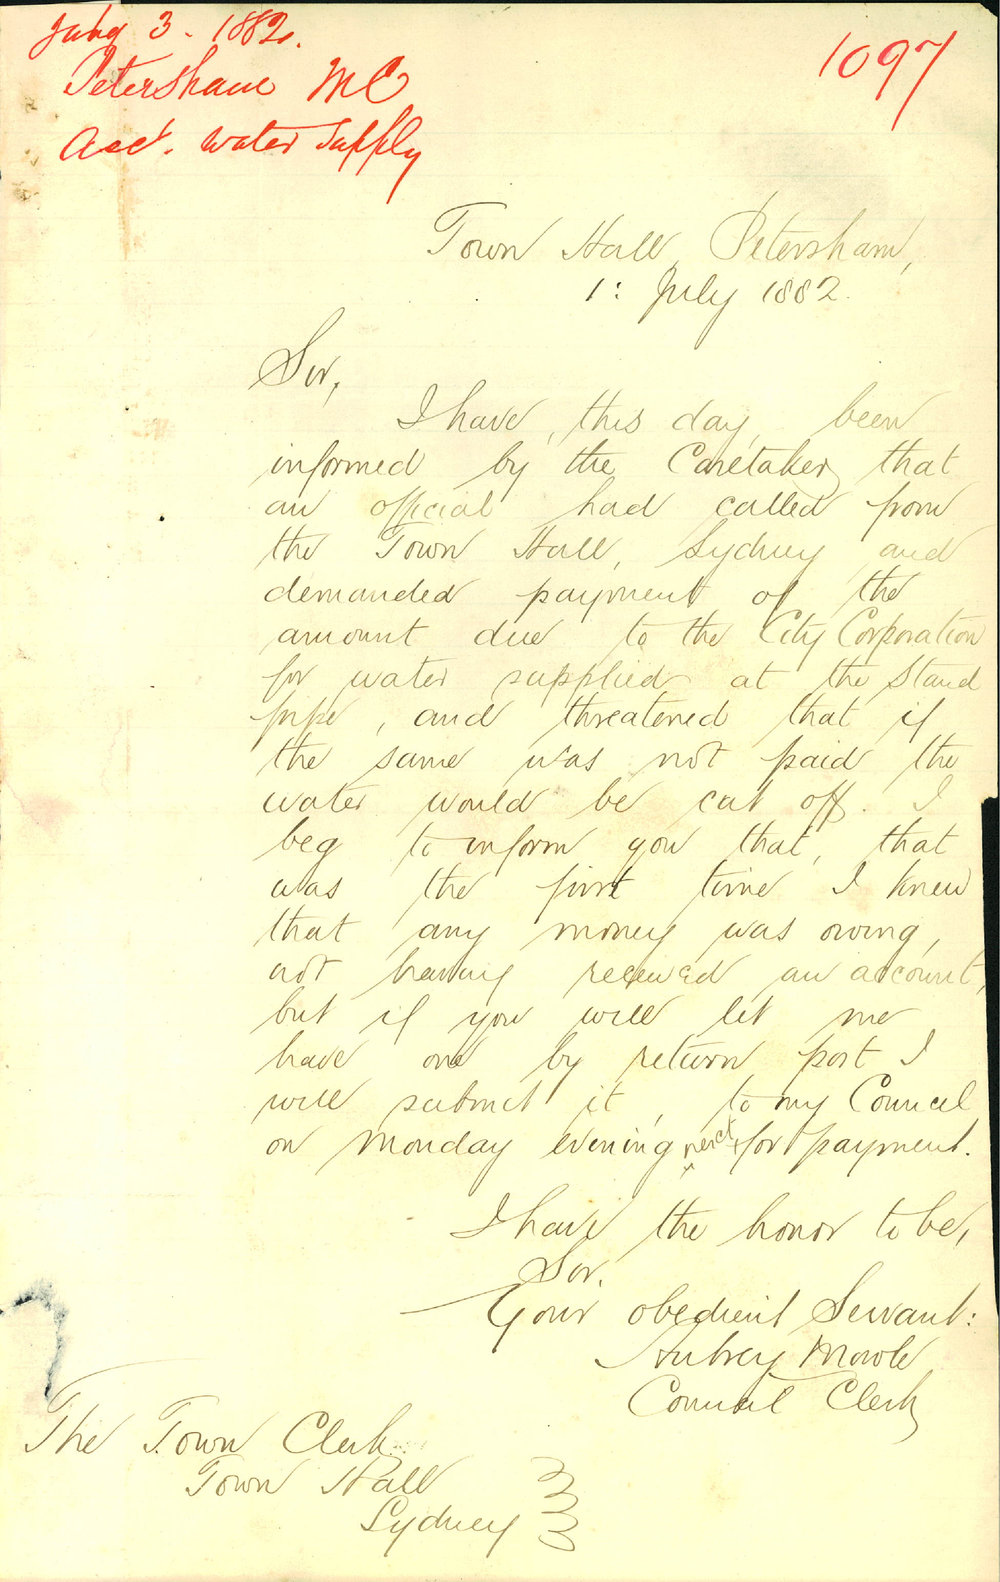 July 3. 1882.
Petersham MC
Acct. water supply
1097
Town Hall, Petersham,
1: July 1882.
Sir,
I have, this day, been
informed by the Caretaker, that
an official had called from
the Town Hall, Sydney and
demanded payment of the
amount due to the City Corporation
for water supplied at the Stand
pipe, and threatened that if
the same was not paid the
water would be cut off. I
beg to inform you that, that
was the first time I knew
that any money was owing,
not having received an account,
but if you will let me
have one by return post I
will submit it, to my Council
on Monday evening next for payment.
I have the honor to be,
Sir,
Your obedient Servant:
Aubrey Mowle
Council Clerk
The Town Clerk
Town Hall
Sydney